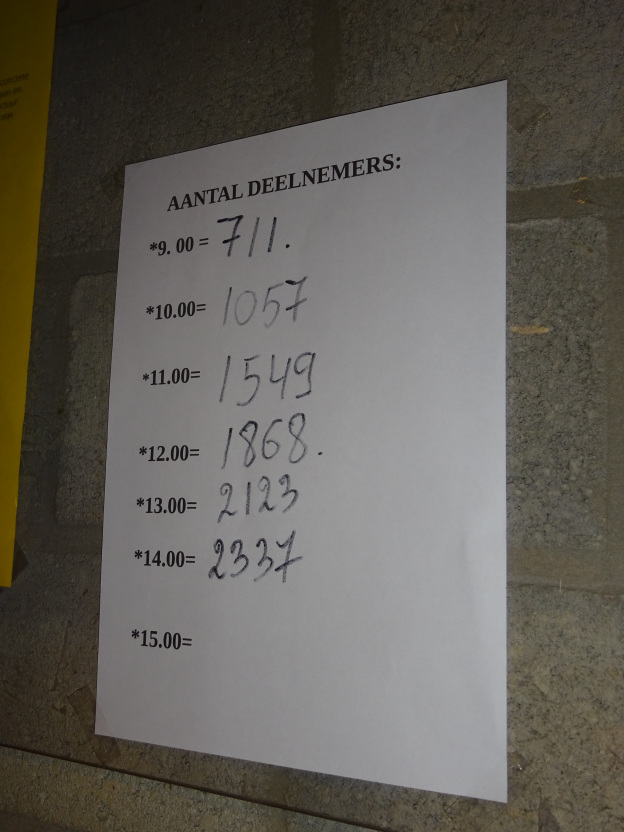 AANTAL DEELNEMERS:
*9. 00 = 711.
*10.00= 1057
*11.00= 1549
*12.00= 1868.
*13.00= 2123
*14.00= 2337
*15.00=